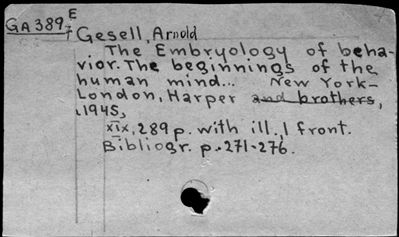 GA 389 E/7
Gesell, Arnold
The Embryology of beha-
vior. The beginnings of the
human mind... New York-
London, Harper and brothers,
1945,
xix, 289 p. with ill., 1 front.
Bibliogr. p. 271-276.